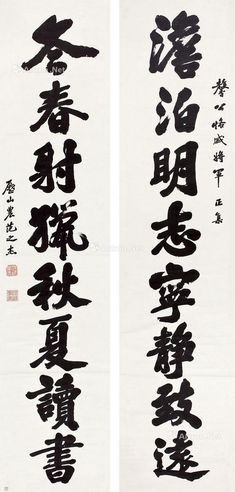 馨公恪威將軍 正
澹泊明志寧靜致遠
冬春射獵秋夏讀書
歷山農范之杰